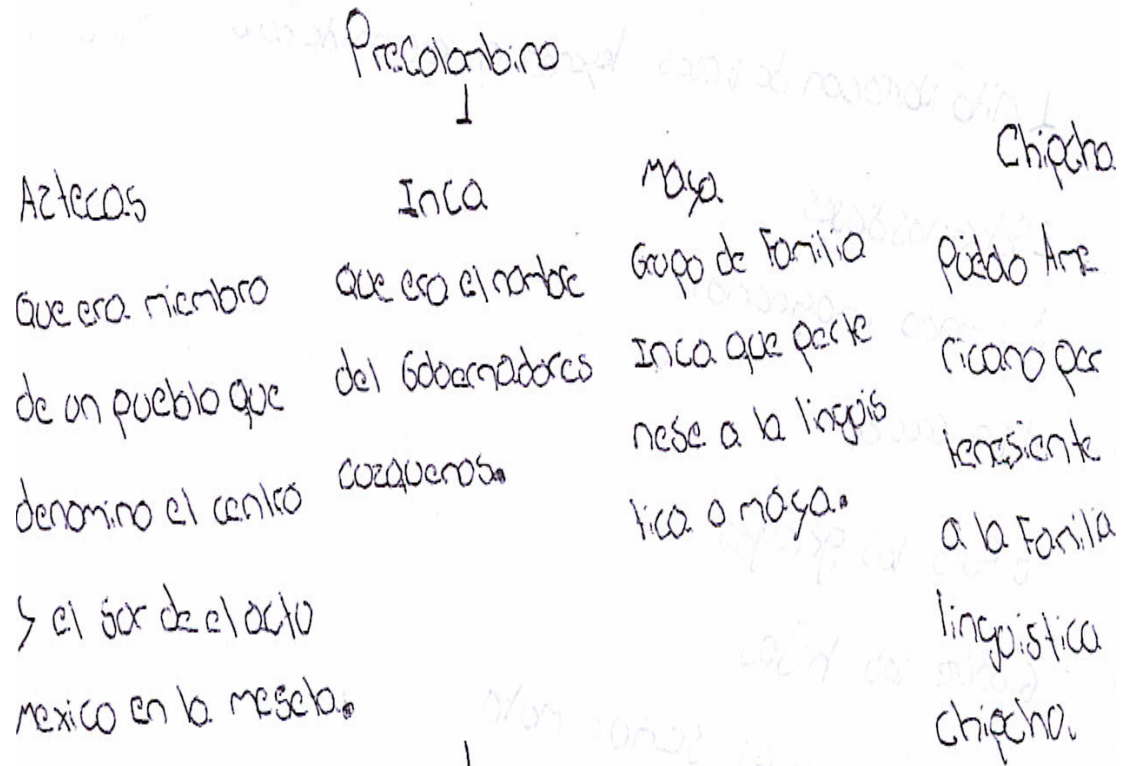 Precolonbino
Aztecas
que era miembro
de un pueblo que
denomino el centro
y el sor de el acto
mexico en la meseta.
Inca
que era el nombre
del Gobernadores
cuzqueños.
Maya
Grupo de Familia
Inca que perte
nese a la linguis
tica o maya.
Chipcha
Pueblo Ame
ricano per
tenesiente
a la Familia
linguistica
chipcha.